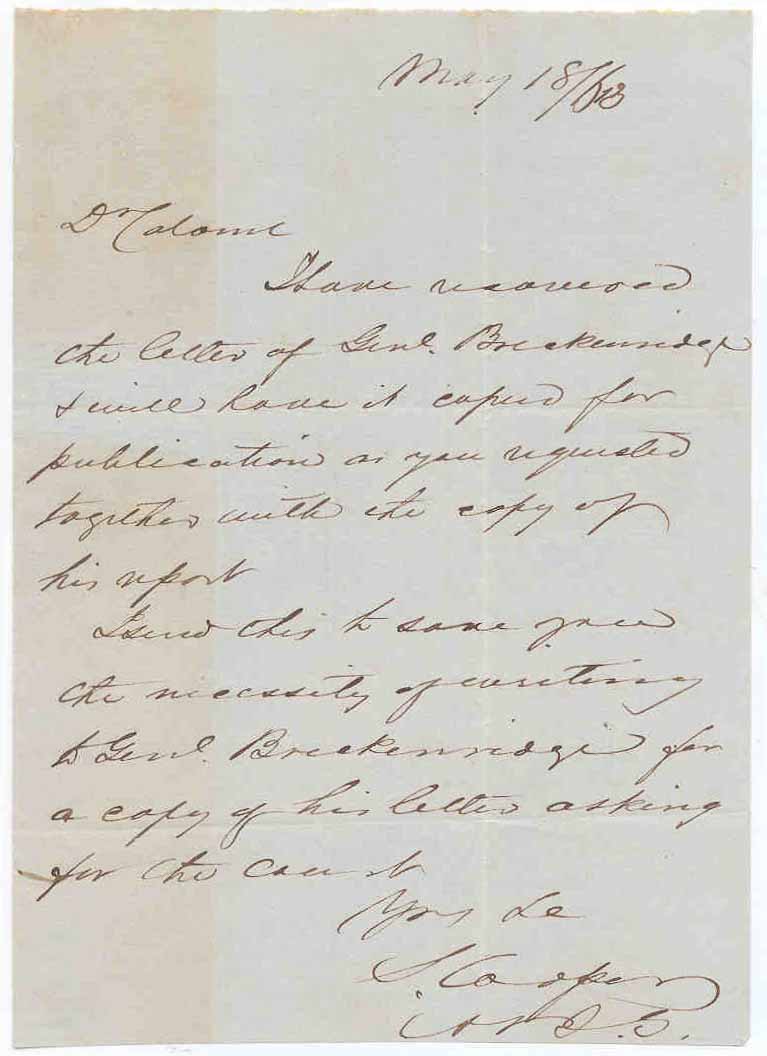 May 18/63
Dr Colonel
I have recovered
the letter of Genl. Breckenridge
& will have it copied for
publication as you requested
together with the copy of
his report
I send this to save you
the necessity of writing
to Genl. Breckenridge for
a copy of his letter asking
for the court
Yrs &c
S. Cooper